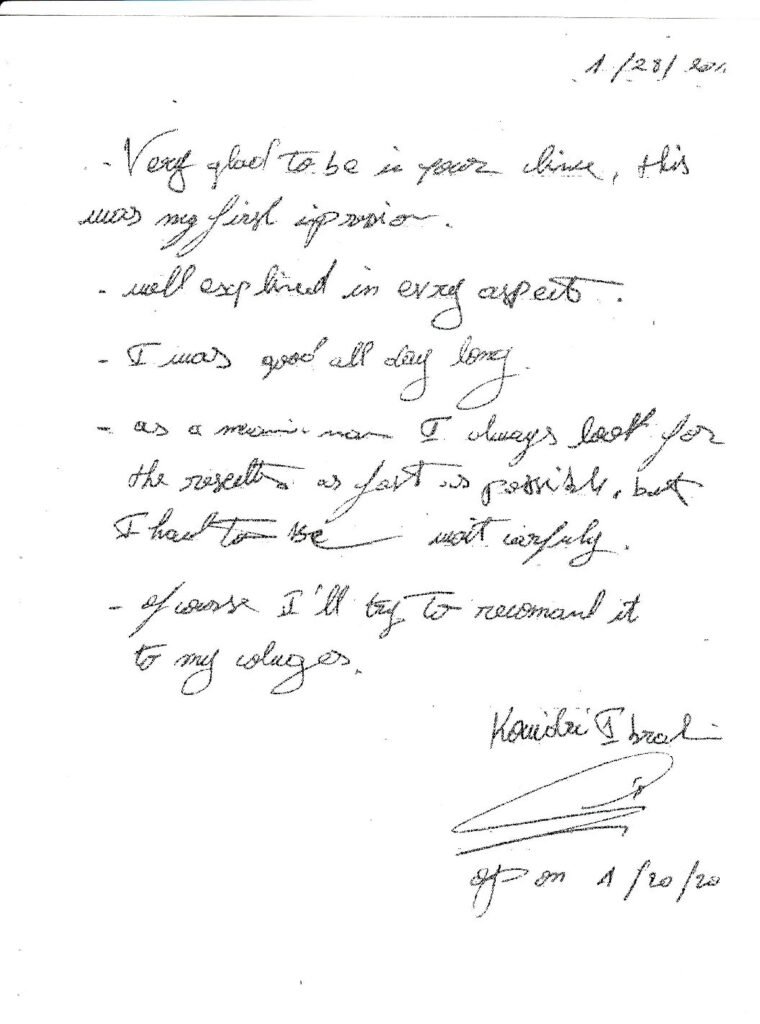 1/28/20
- Very glad to be in your clinic, this
was my first
- well explined in evry aspects.
- I was good all day long.
- as a I always look for
the results as fast as possible, but
I had to be wait carfuly.
- of course I'll try to recomand it
to my coluges.
op on 1/20/20